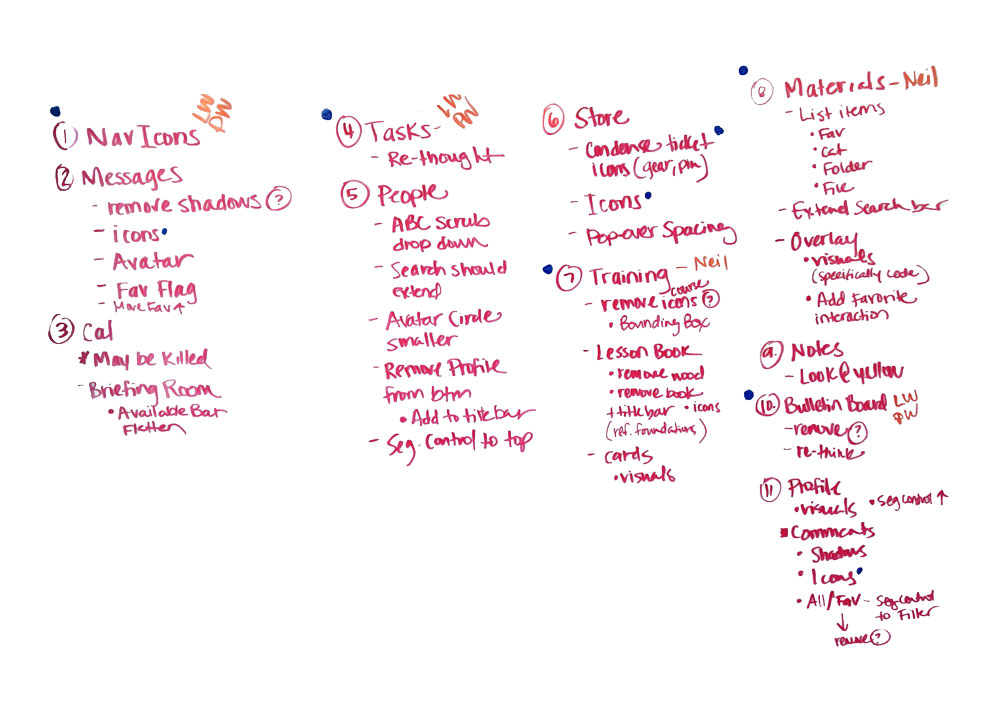 ① Nav Icons LW PW
② Messages
- remove shadows ?
- icons
- Avatar
- Fav Flag
- More Fav ↑
③ Cal
* May be Killed
- Briefing Room
• Available Bar
Flatten
④ Tasks - LW PW
- Re-thought
⑤ People
- ABC Scrub
drop down
- Search should
extend
- Avatar Circle
smaller
- Remove Profile
from btm
• Add to title bar
- Seg. Control to top
⑥ Store
- Condense ticket
icons (gear, pin)
- Icons
- Pop-over Spacing
⑦ Training - Neil
course
- remove icons ?
• Bounding Box
- Lesson Book
• remove wood
• remove book
+ title bar • icons
(ref. foundations)
- cards
• visuals
⑧ Materials - Neil
- List items
• Fav
• Cat
• Folder
• File
- Extend Search bar
- Overlay
• visuals
(specifically code)
• Add favorite
interaction
⑨. Notes
- Look @ yellow
⑩. Bulletin Board LW PW
- remove ?
- re-think
⑪ Profile
• visuals • Seg control ↑
▪ Comments
• Shadows
• Icons
• All/Fav - Seg control
to Filter
↓
remove ?